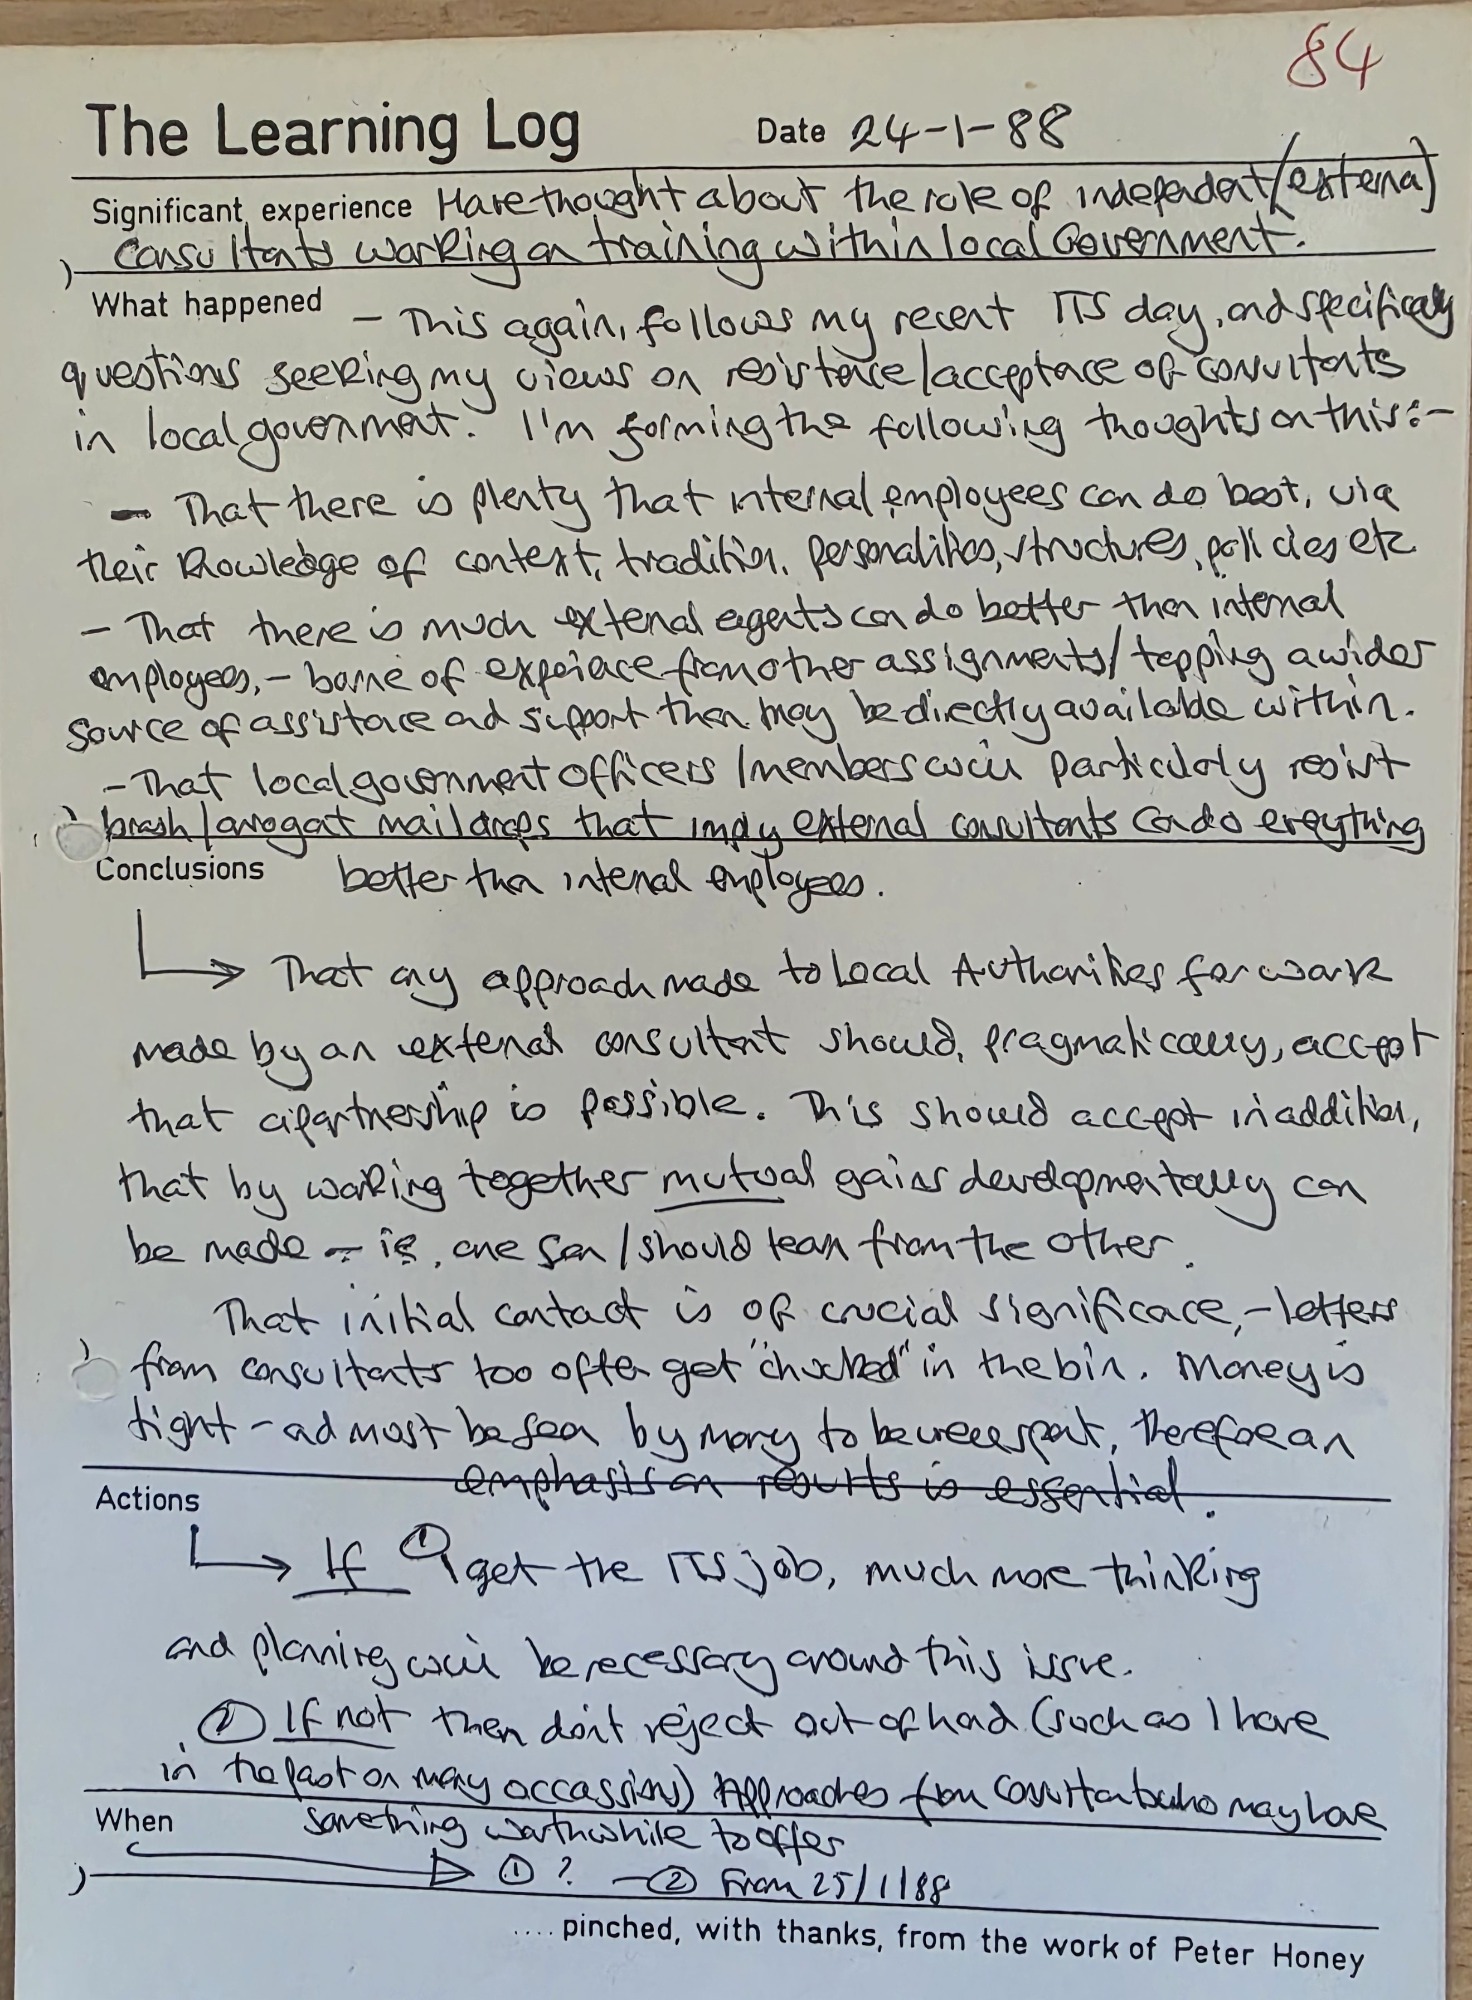 84
The Learning Log Date 24-1-88
Significant experience Have thought about the role of independent/(external)
Consultants working on training within local Government.
What happened - This again, follows my recent ITS day, and specifically
questions seeking my views on resistance/acceptance of consultants
in local government. I'm forming the following thoughts on this:-
- That there is plenty that internal employees can do best, via
their knowledge of context, tradition, personalities, structures, policies etc
- That there is much external agents can do better than internal
employees, - borne of experience from other assignments/tapping a wider
source of assistance and support than may be directly available within.
- That local government officers/members will particularly resist
brash/arrogant mail drops that imply external consultants can do everything
Conclusions better than internal employees.
That any approach made to Local Authorities for work
made by an external consultant should, pragmatically, accept
that a partnership is possible. This should accept in addition,
that by working together mutual gains developmentally can
be made - ie, one can/should learn from the other.
That initial contact is of crucial significance, - letters
from consultants too often get "chucked" in the bin. Money is
tight - and must be seen by many to be well spent, therefore an
emphasis on results is essential.
Actions
If ① I get the ITS job, much more thinking
and planning will be necessary around this issue.
② If not then don't reject out of hand (such as I have
in the past on many occassions) Approaches from consultants who may have
When something worthwhile to offer
① ? - ② From 25/1/88
.... pinched, with thanks, from the work of Peter Honey